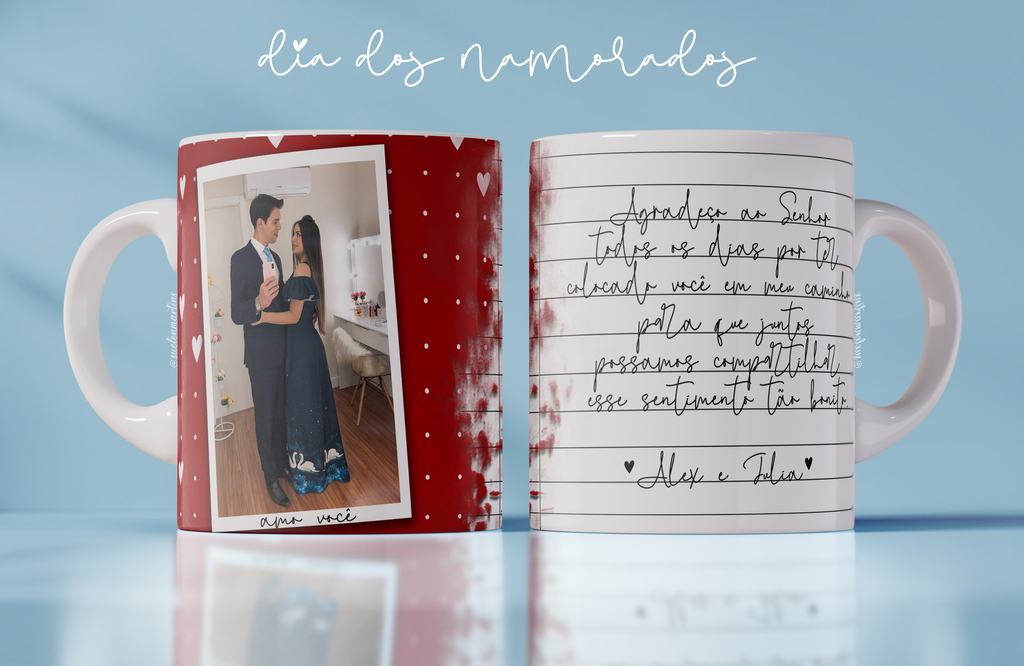 dia dos namorados
Agradeço ao Senhor
todos os dias por ter
colocado você em meu caminho
para que juntos
possamos compartilhar
esse sentimento tão bonito.
Alex e Julia
amo você